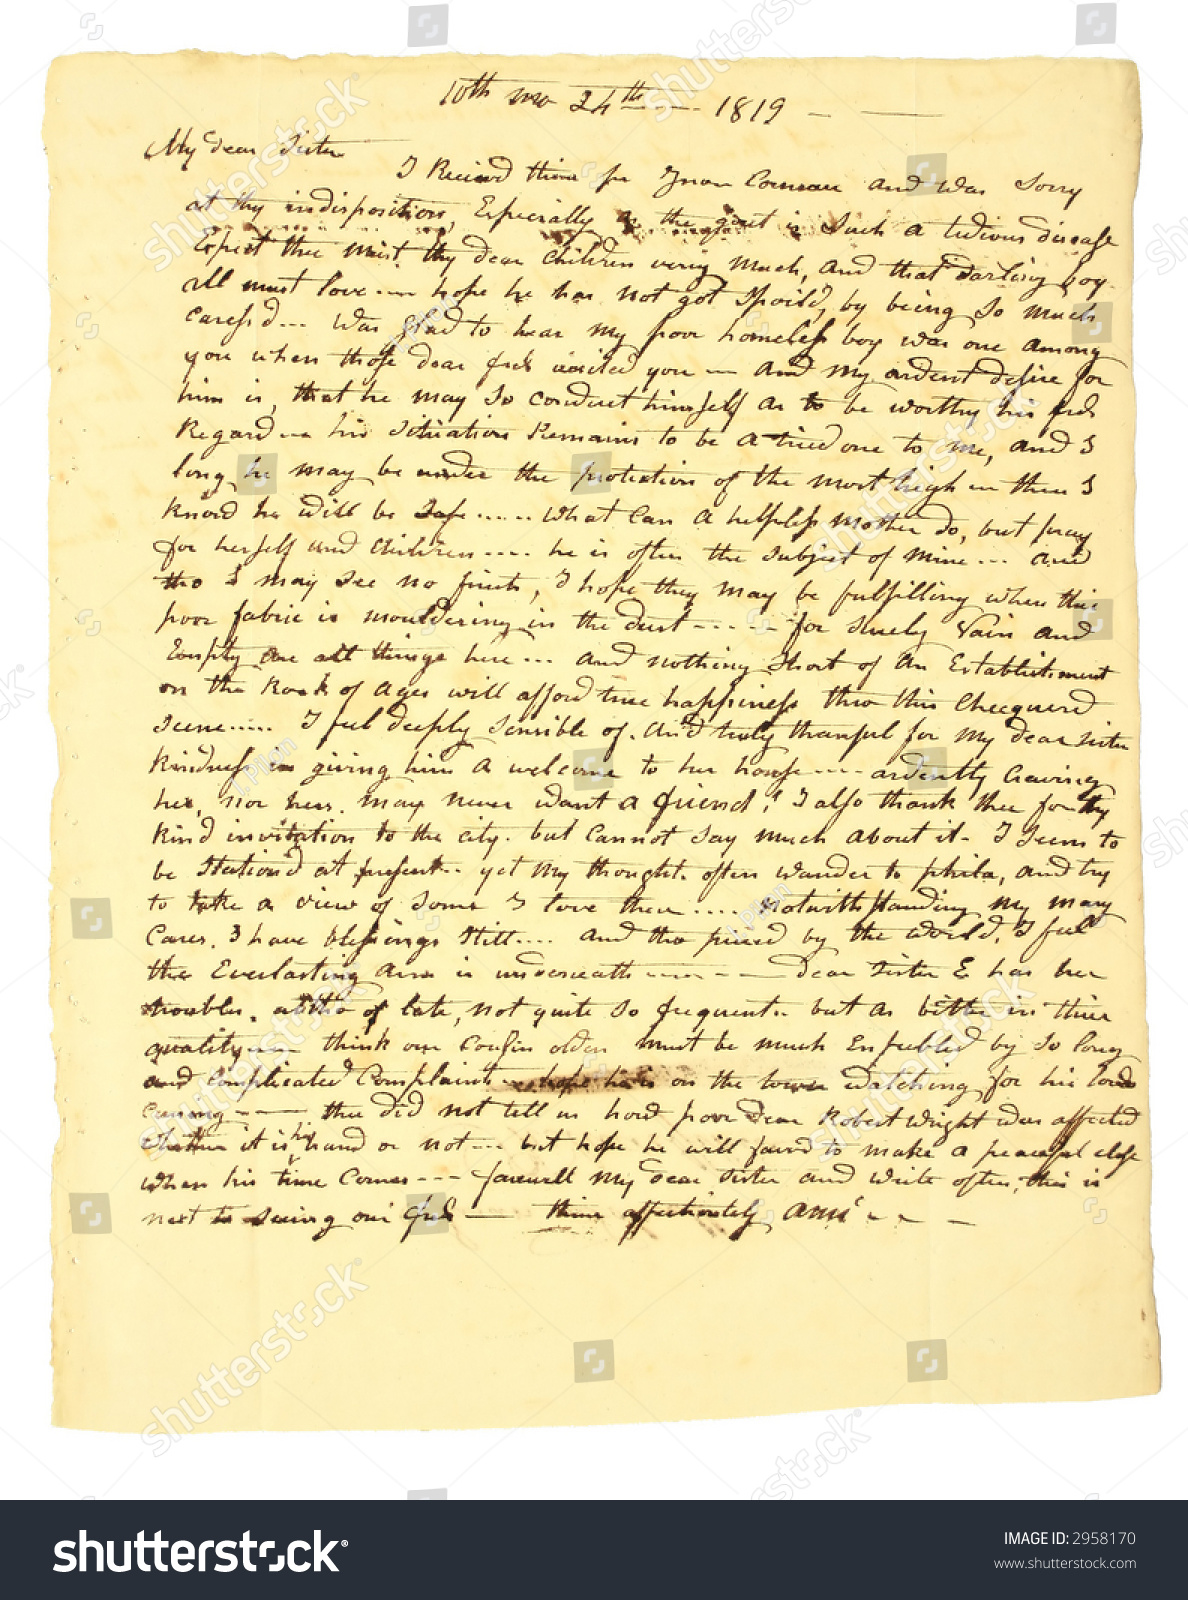 10th mo 24th 1819
My dear Sister
I Received thine per and was Sorry
at thy indisposition, Especially as the gout is Such a tedious disease
Expect thee mist thy dear Children very much, and that darling boy
all must love — hope he has not got Spoild, by being So much
caress'd... Was glad to hear my poor homeless boy was one among
you when those dear frds visited you — and my ardent desire for
him is, that he may So conduct himself as to be worthy his frds
Regard — his Situation Remains to be a tried one to me, and I
long he may be under the protection of the most high — then I
know he will be Safe..... What Can a helpless Mother do, but pray
for herself and Children.... he is often the Subject of mine... and
tho I may See no fruits, I hope they may be fulfilling when this
poor fabric is mouldering in the dust ----- for Surely Vain and
Empty are all things here... and nothing Short of an Establishment
on the Rock of Ages will afford true happiness thro this Checquerd
Scene..... I feel deeply Sensible of. and truly thankful for my dear Sister
Kindness in giving him a welcome to her house ---- ardently Craving
her, nor hers. may never want a friend! I also thank thee for thy
kind invitation to the city. but Cannot Say much about it - I Seem to
be Stationd at present.. yet my thoughts often wander to phila, and try
to take a view of Some I love there.... Notwithstanding my many
Cares, I have blessings Still.... and tho prised by the world, I feel
the Everlasting Arm is underneath ---- dear Sister E has her
troubles. altho of late, not quite So frequent.. but as bitter in their
quality — think our Cousin olden must be much Enfeebled by So long
and Complicated Complaints — hope he is on the tower watching for his lords
Coming --- thee did not tell us how poor dear Robert Wright was affected
whether it is his hand or not... but hope he will favord to make a peaceful close
when his time Comes --- farewell my dear Sister and write often, this is
next to Seeing our frds — thine affectionately Ann
shutterstock
IMAGE ID: 2958170
www.shutterstock.com